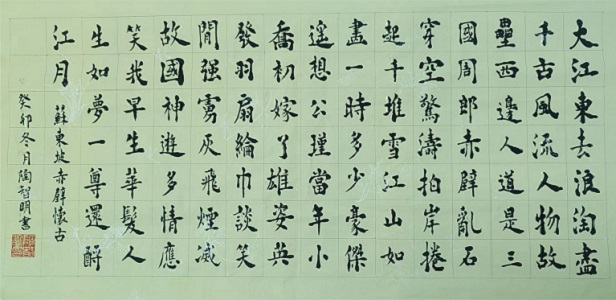 大江東去浪淘盡
千古風流人物故
壘西邊人道是三
國周郎赤壁亂石
穿空驚濤拍岸捲
起千堆雪江山如
畫一時多少豪傑
遥想公瑾當年小
喬初嫁了雄姿英
發羽扇綸巾談笑
間强虜灰飛煙滅
故國神遊多情應
笑我早生華髮人
生如夢一尊還酹
江月
蘇東坡赤壁懷古
癸卯冬月陶智明書